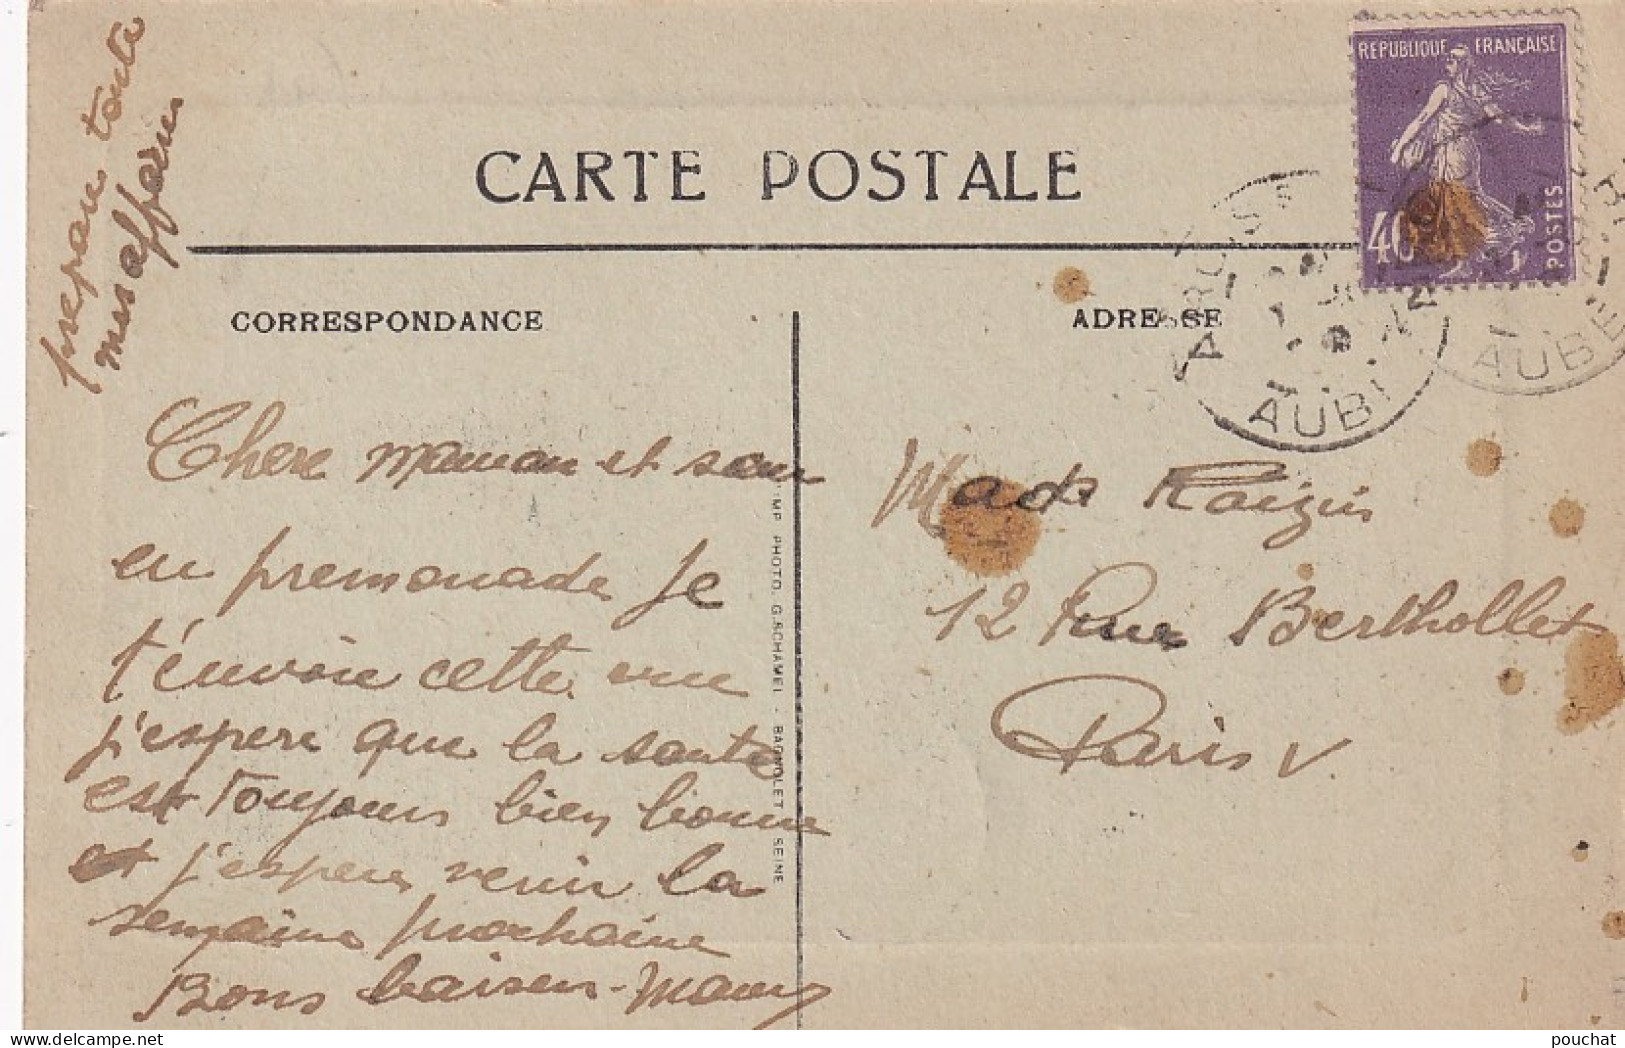 prepare toute
mes affaires
CARTE POSTALE
REPUBLIQUE FRANÇAISE
40
POSTES
AUBE
AUBE
CORRESPONDANCE
ADRESSE
Chere maman et sœur
en promenade je
t'envoie cette vue
j'espere que la sante
est Toujours bien bonne
et j'espere venir la
semaine prochaine
Bons baisers - 
IMP. PHOTO. G. SCHAMEL - BAGNOLET SEINE
12 Rue Berthollet
Paris V.
pouchat
delcampe.net